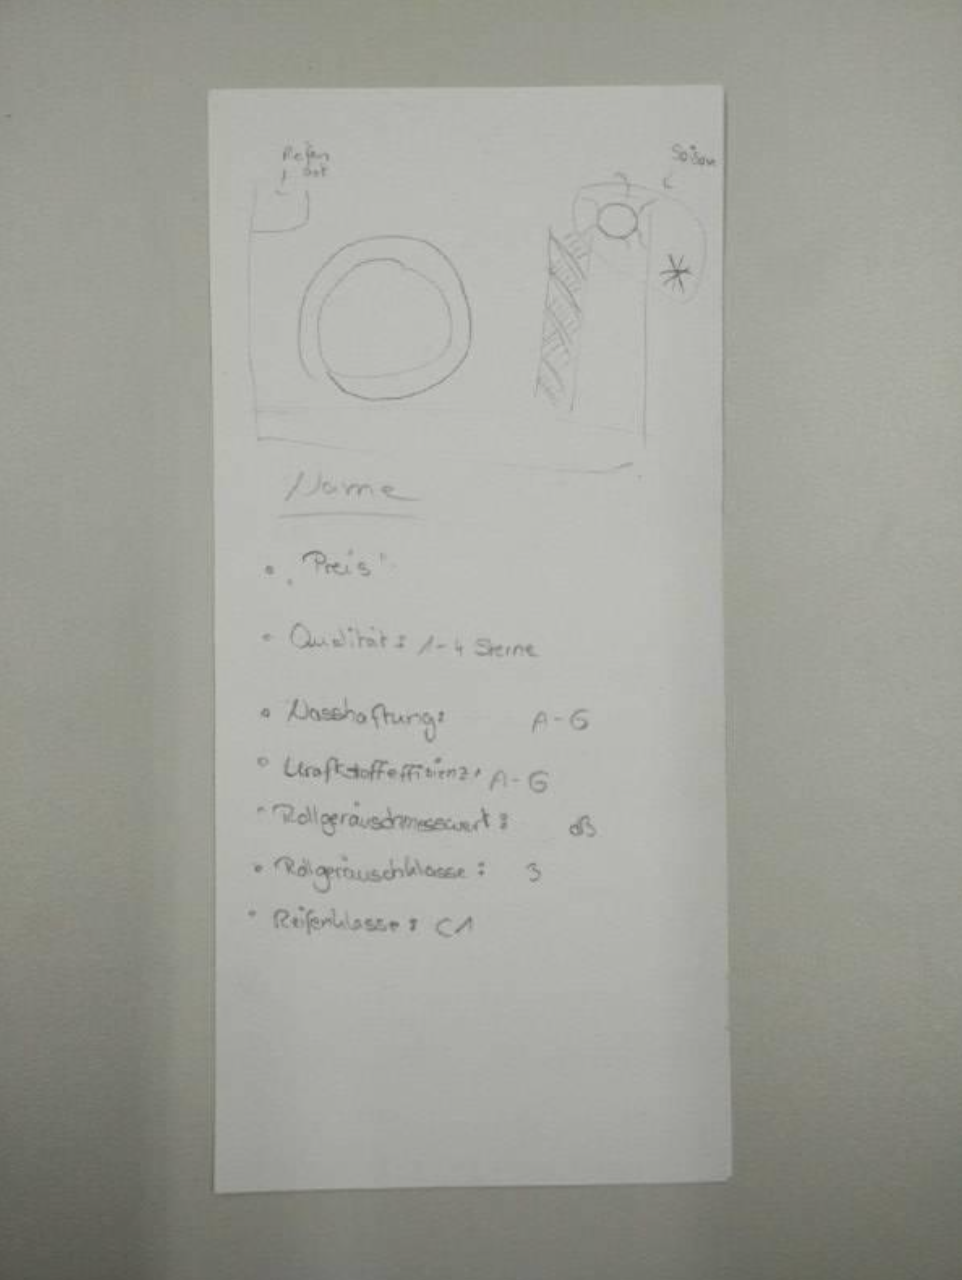 Reifen
Art
Saison
Name
• "Preis"
• Qualität: 1-4 Sterne
• Nasshaftung: A-G
• Kraftstoffeffizienz: A-G
• Rollgeräuschmesswert: dB
• Rollgeräuschklasse: 3
• Reifenklasse: C1